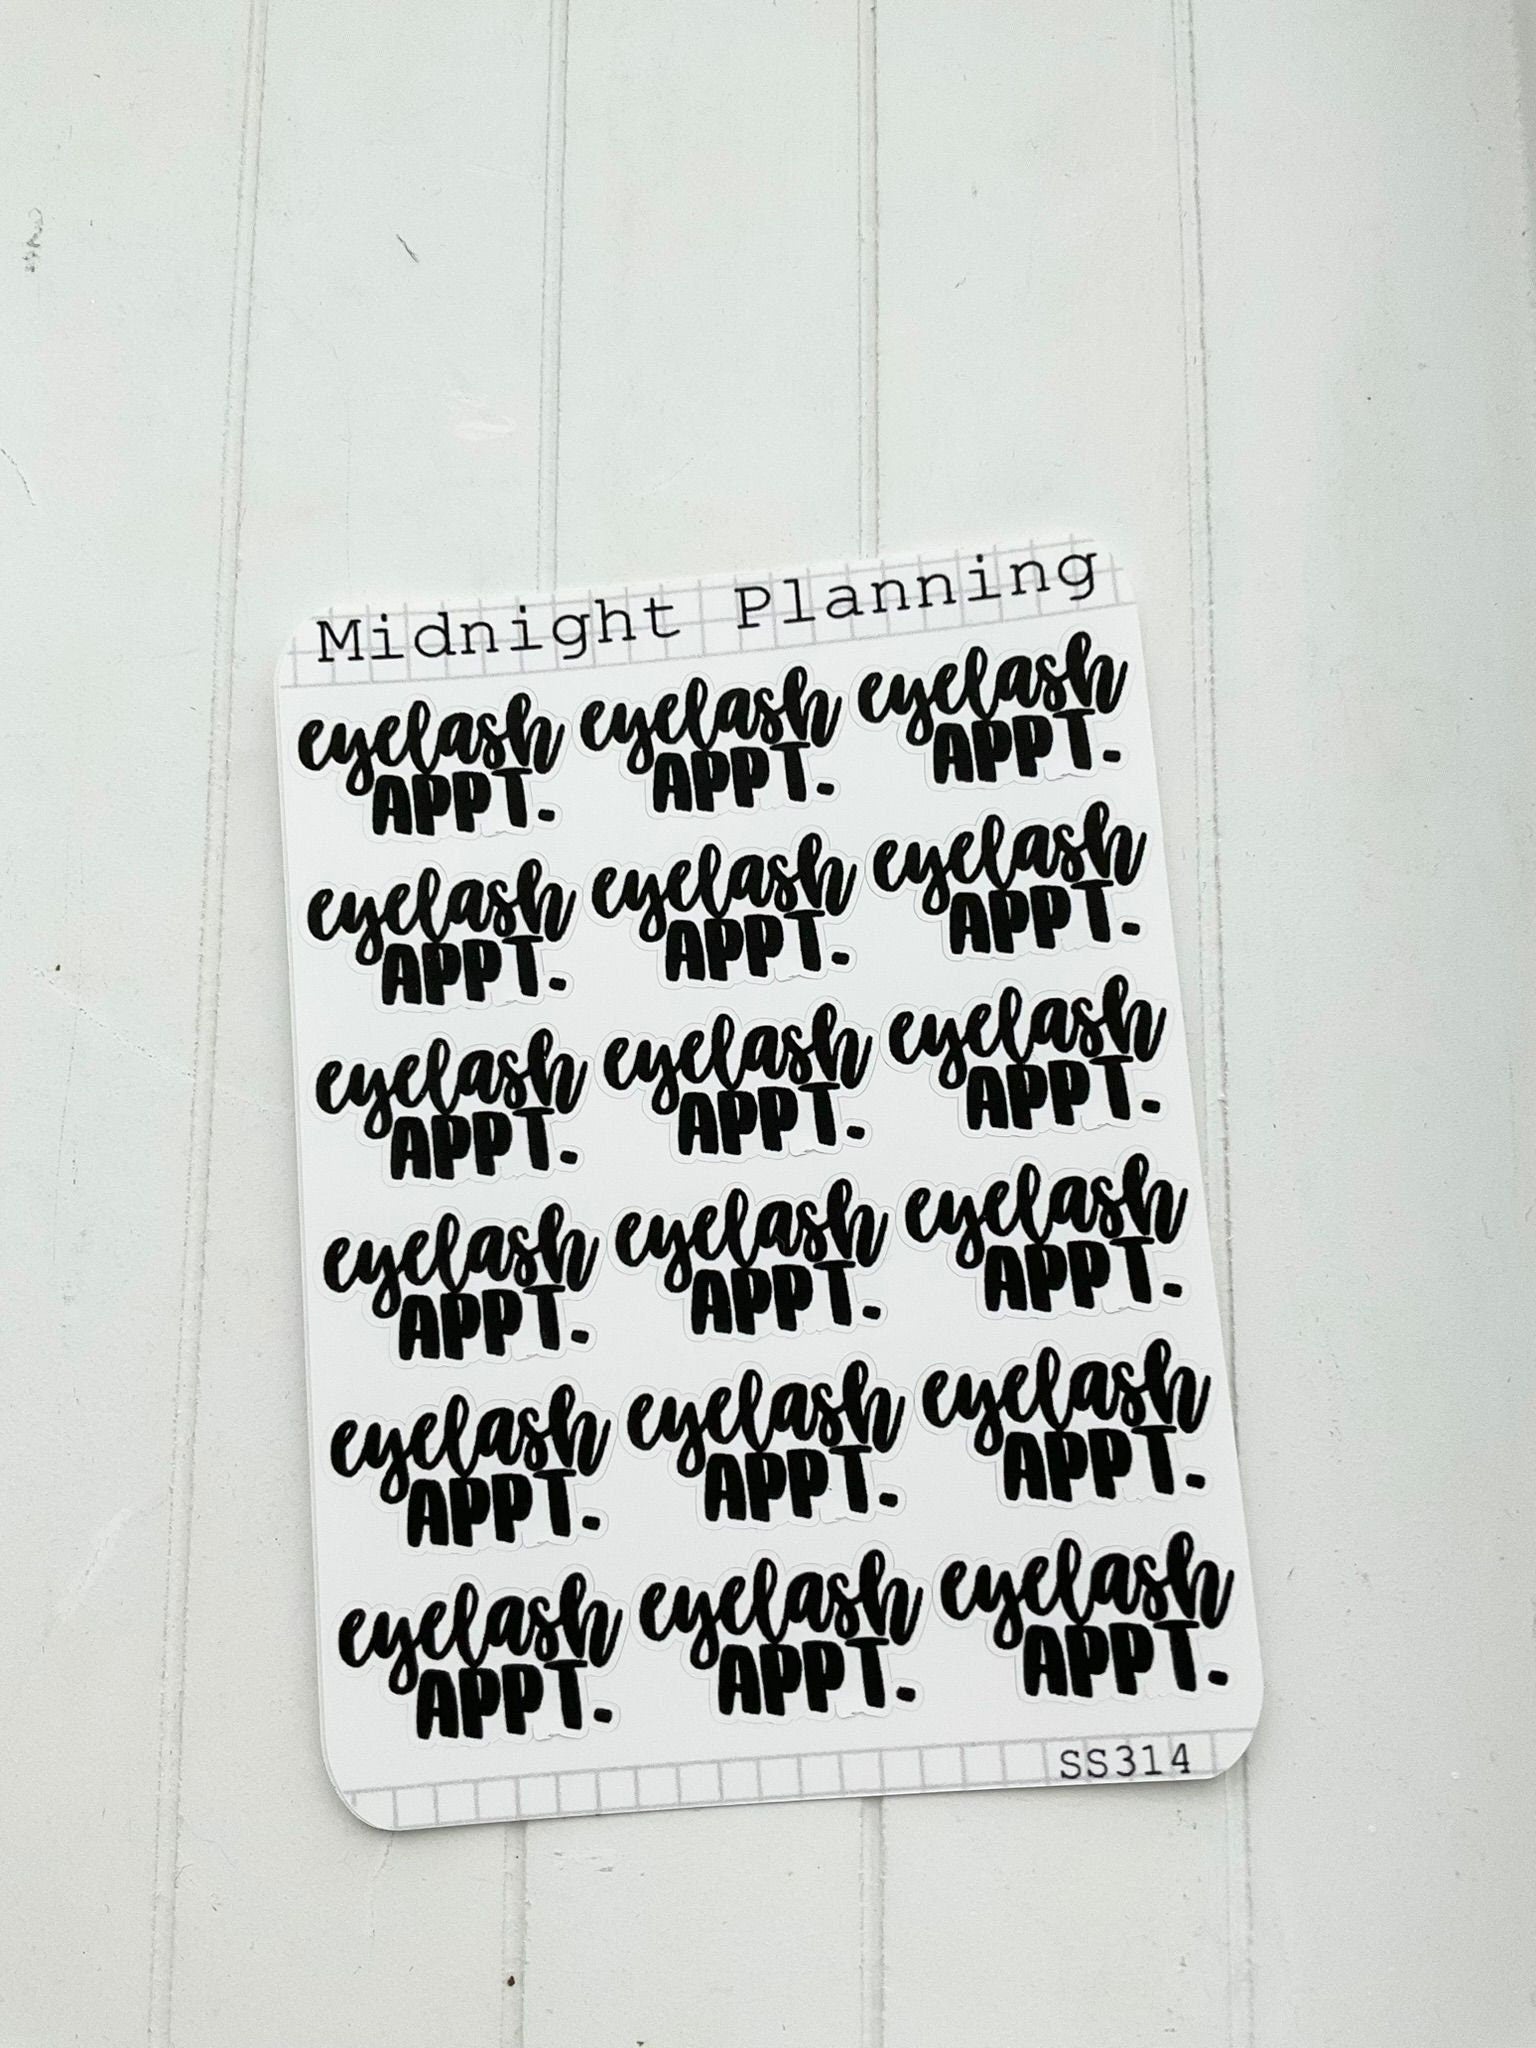 Midnight Planning
eyelash eyelash eyelash
APPT. APPT. APPT.
eyelash eyelash eyelash
APPT. APPT. APPT.
eyelash eyelash eyelash
APPT. APPT. APPT.
eyelash eyelash eyelash
APPT. APPT. APPT.
eyelash eyelash eyelash
APPT. APPT. APPT.
eyelash eyelash eyelash
APPT. APPT. APPT.
SS314